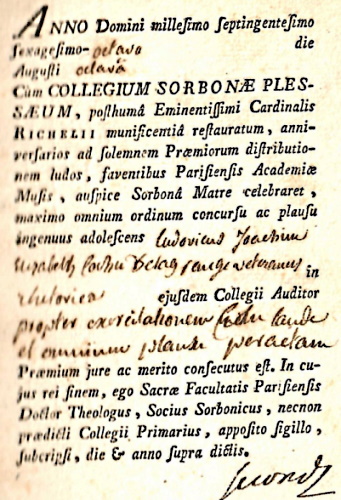 ANNO Domini millesimo septingentesimo
sexagesimo-octavo die
Augusti octavâ
Cùm COLLEGIUM SORBONÆ PLES-
SÆUM, posthumâ Eminentissimi Cardinalis
RICHELII munificentiâ restauratum, anni-
versarios ad solemnem Præmiorum distributio-
nem ludos, faventibus Parisiensis Academiæ
Musis, auspice Sorbonâ Matre celebraret,
maximo omnium ordinum concursu ac plausu
ingenuus adolescens Ludovicus Joachim
Elizabeth veteranus
in
rhetorica ejusdem Collegii Auditor
propter exercitationem cum laude
et omnium plausu peractam
Præmium jure ac merito consecutus est. In cu-
jus rei finem, ego Sacræ Facultatis Parisiensis
Doctor Theologus, Socius Sorbonicus, necnon
prædicti Collegii Primarius, apposito sigillo,
subscripsi, die & anno supra dictis.